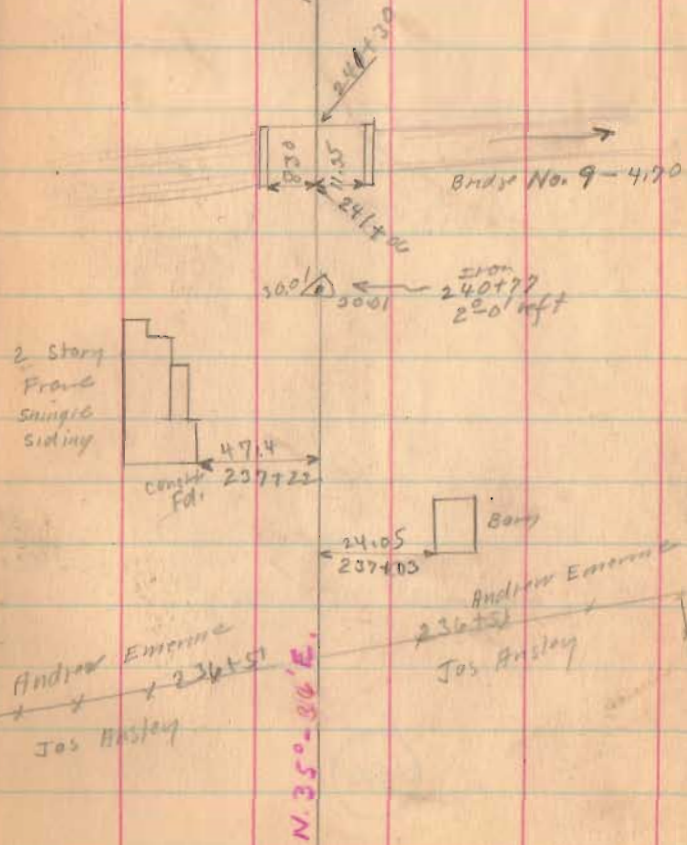 241+30
8.30
11.35
Bridge No. 9-4.70
241+06
30.0'
30.01
Iron
240+77
2°-0' left
2 Story
Frame
Shingle
Siding
47.4
237+22
Concrt
Fd.
Barn
24.05
237+03
Andrew Emerine
236+51
Jos Ansley
Andrew Emerine
236+51
Jos Ansley
N.35°-36'E.